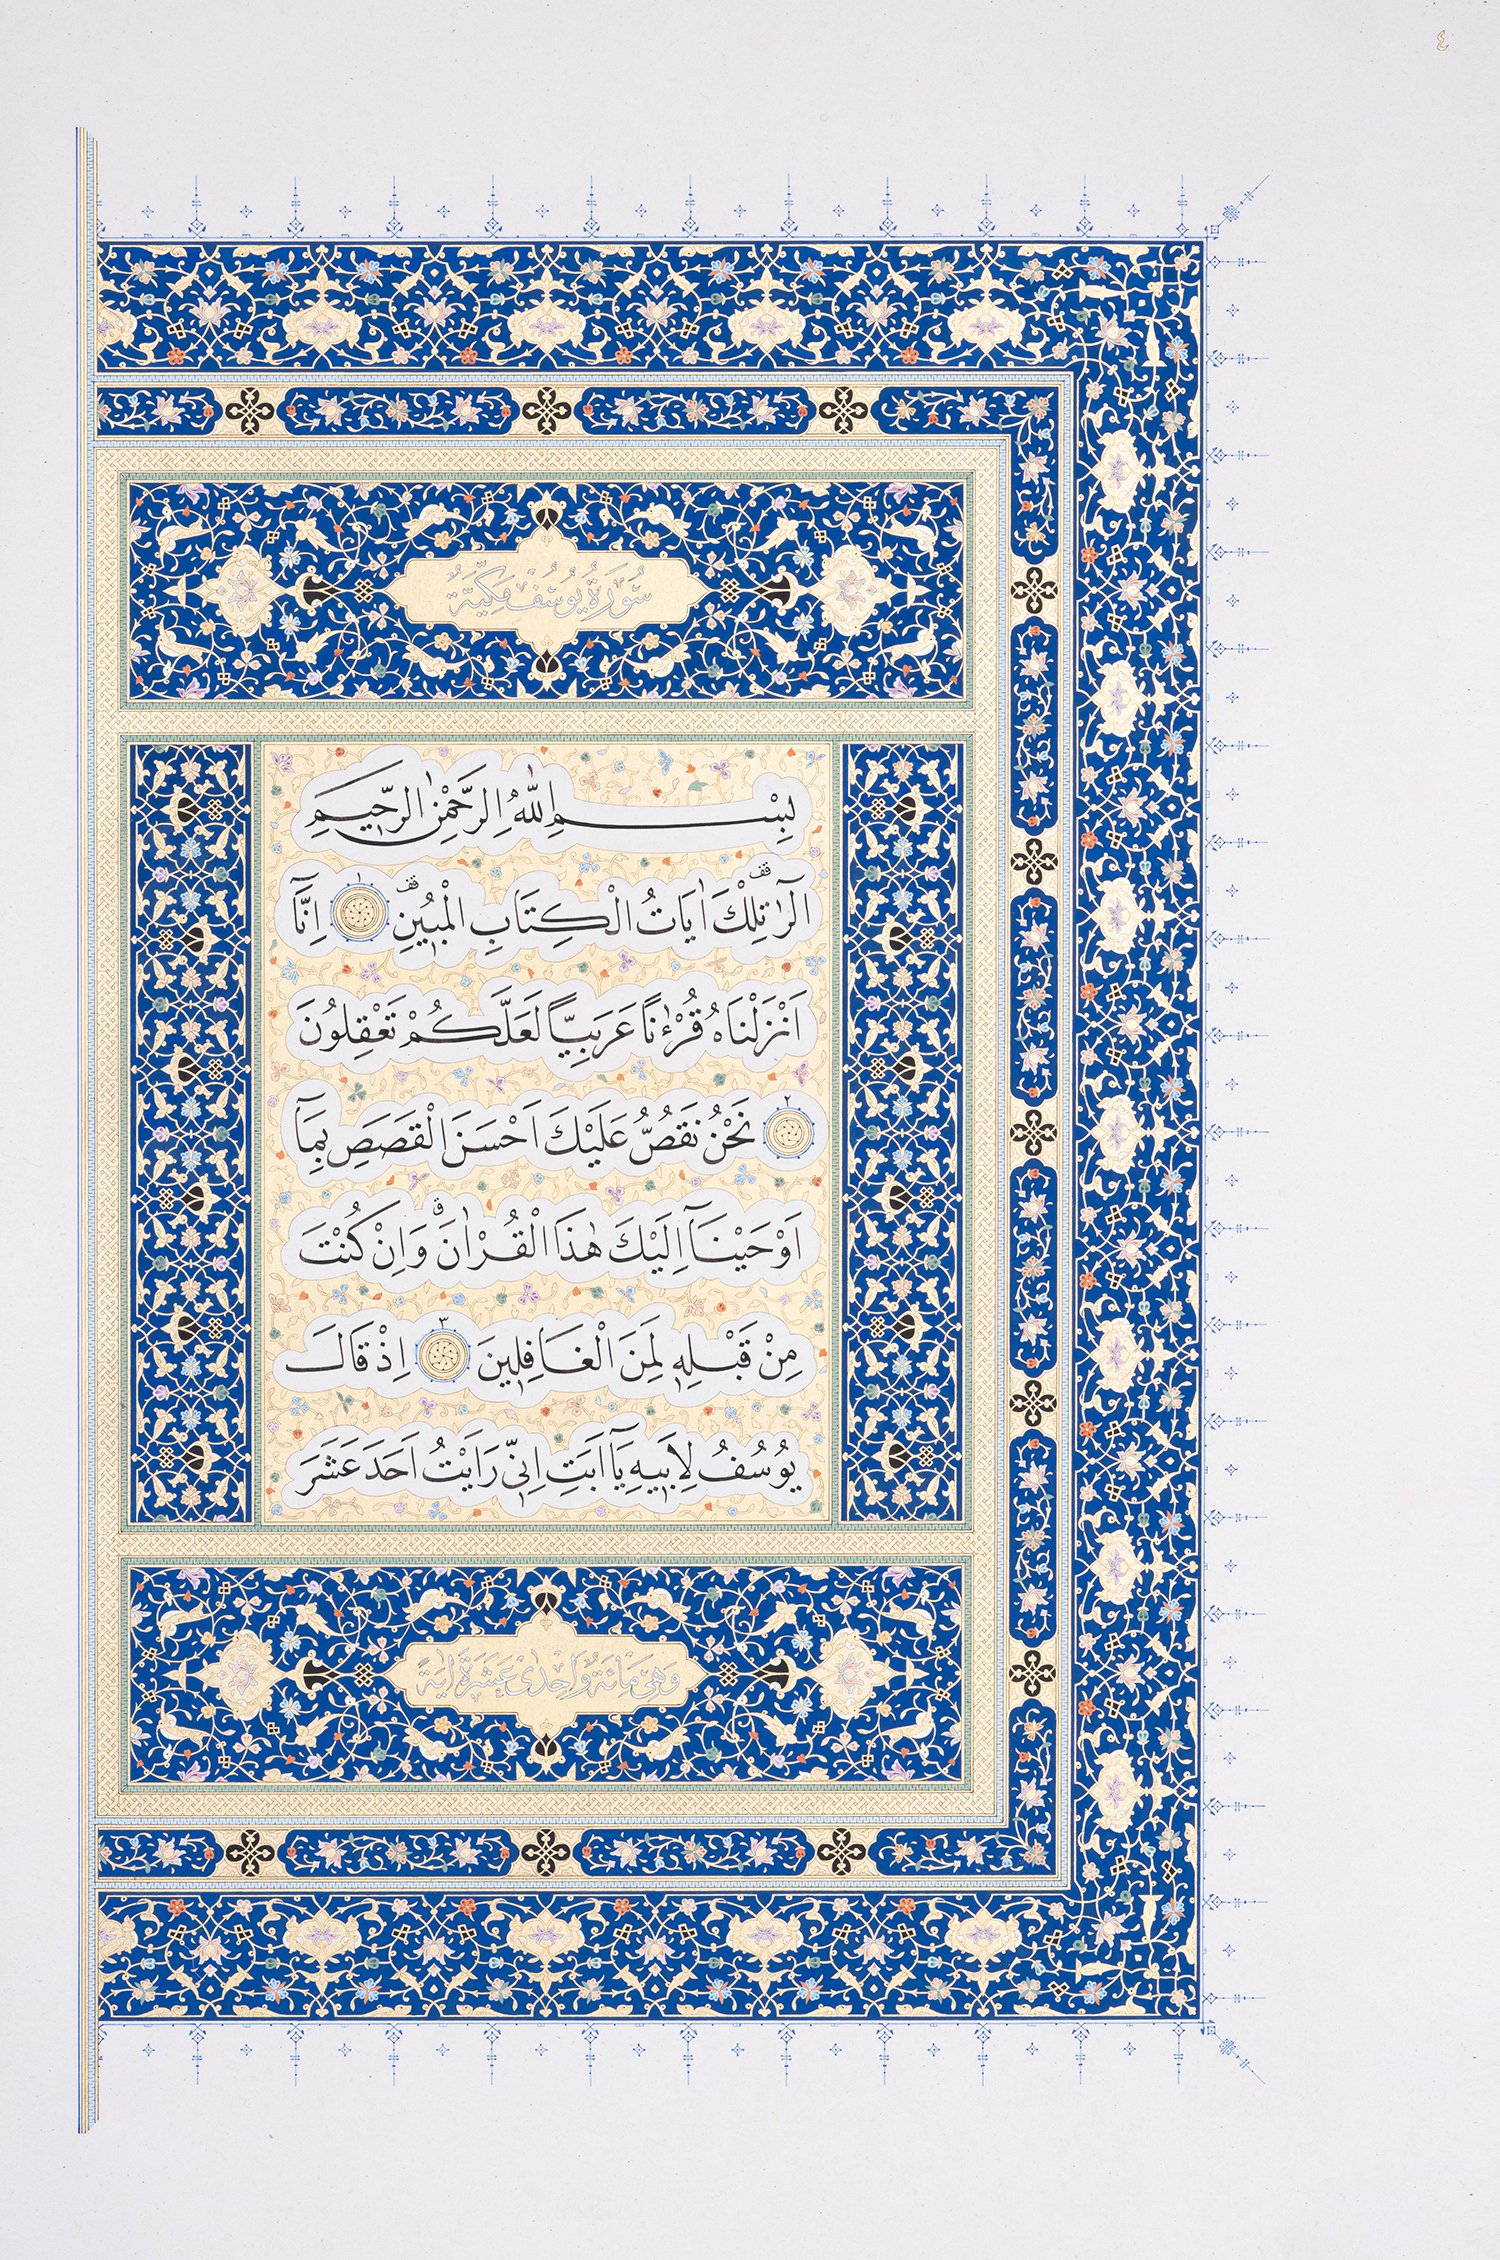 ٤
سُورَةُ يُوسُفَ مَكِّيَّةٌ
بِسْمِ اللّٰهِ الرَّحْمٰنِ الرَّحٖيمِ
الٓرٰ ࣞ تِلْكَ اٰيَاتُ الْكِتَابِ الْمُبٖينِ قف ١ اِنَّٓا
اَنْزَلْنَاهُ قُرْءٰناً عَرَبِيّاً لَعَلَّكُمْ تَعْقِلُونَ
٢ نَحْنُ نَقُصُّ عَلَيْكَ اَحْسَنَ الْقَصَصِ بِمَٓا
اَوْحَيْنَٓا اِلَيْكَ هٰذَا الْقُرْاٰنَ وَاِنْ كُنْتَ
مِنْ قَبْلِهٖ لَمِنَ الْغَافِلٖينَ ٣ اِذْ قَالَ
يُوسُفُ لِاَبٖيهِ يَٓا اَبَتِ اِنّٖى رَاَيْتُ اَحَدَ عَشَرَ
وَهِيَ مِائَةٌ وَاِحْدٰى عَشْرَةَ اٰيَةً